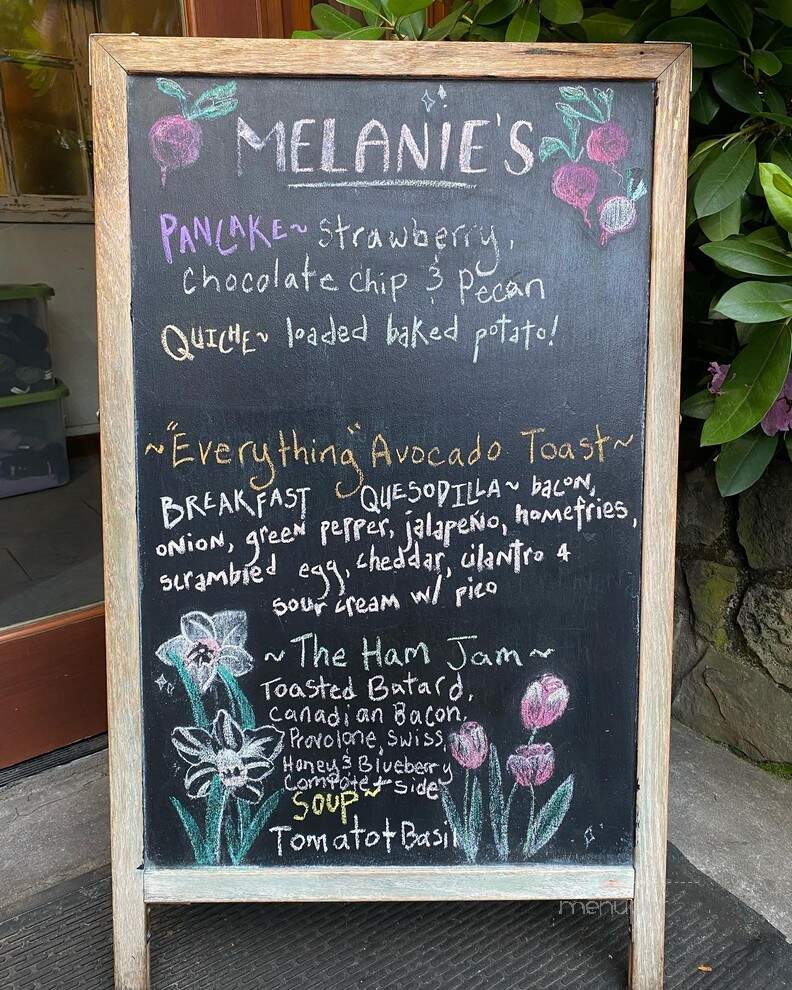 MELANIE'S
PANCAKE~ strawberry,
chocolate chip & Pecan
QUICHE~ loaded baked potato!
~"Everything" Avocado Toast~
BREAKFAST QUESODILLA~ bacon,
onion, green pepper, jalapeño, homefries,
scrambled egg, cheddar, cilantro &
sour cream w/ pico
~The Ham Jam~
Toasted Batard,
Canadian Bacon,
Provolone, Swiss,
Honey & Blueberry
Compote + side
SOUP~
Tomato + Basil
menu